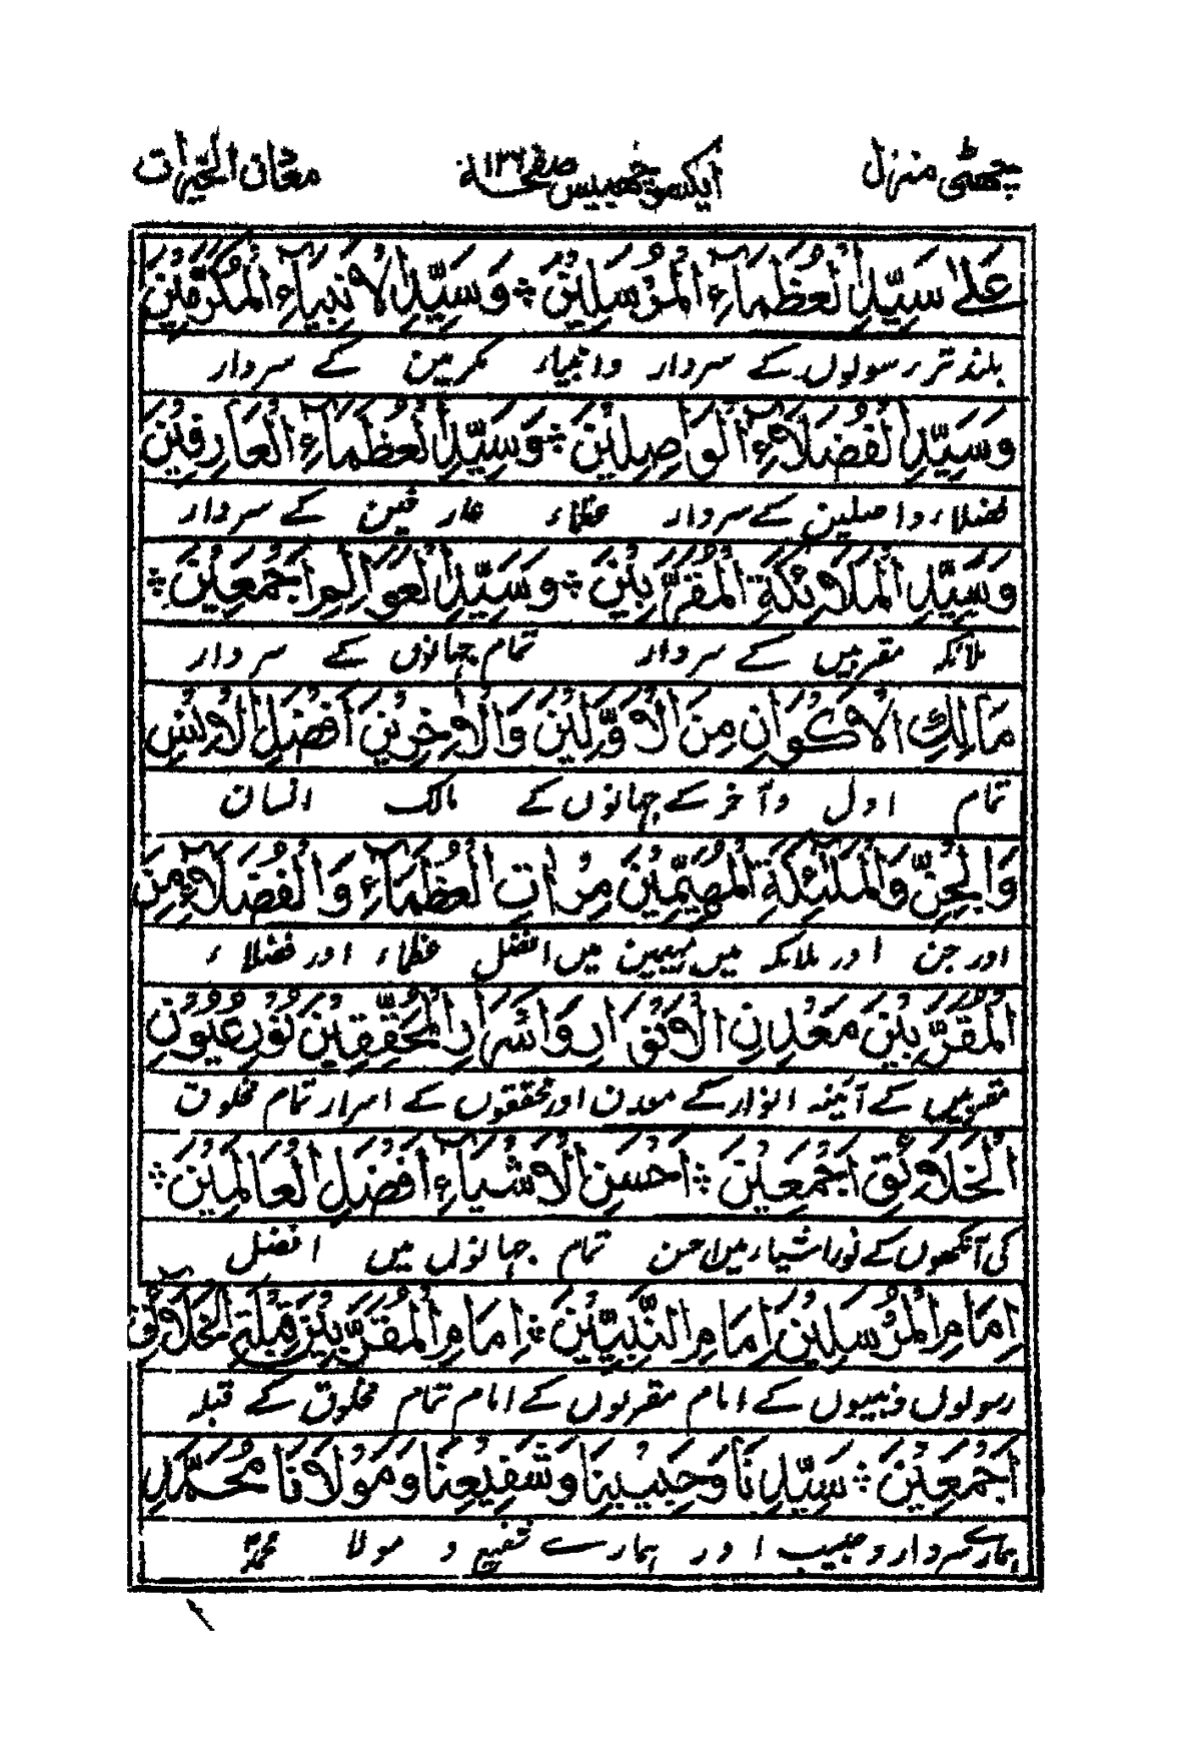 چھٹی منزل ایکسو چھبیس صفحہ ۱۲۶ معان الخیرات
عَلٰى سَيِّدِ الْعُظَمَآءِ الْمُرْسَلِيْنَ ۞ وَسَيِّدِ الْاَنْبِيَآءِ الْمُكَرَّمِيْنَ
بلند تر رسولوں کے سردار وانبیاء مکرمین کے سردار
وَسَيِّدِ الْفُضَلَآءِ الْوَاصِلِيْنَ ۞ وَسَيِّدِ الْعُظَمَآءِ الْعَارِفِيْنَ
فضلاء واصلین کے سردار عظماء عارفین کے سردار
وَسَيِّدِ الْمَلَائِكَةِ الْمُقَرَّبِيْنَ ۞ وَسَيِّدِ الْعَوَالِمِ اَجْمَعِيْنَ ۞
ملائکہ مقربین کے سردار تمام جہانوں کے سردار
مَالِكِ الْاَكْوَانِ مِنَ الْاَوَّلِيْنَ وَالْاٰخِرِيْنَ اَفْضَلِ الْاِنْسِ
تمام اول وآخر کے جہانوں کے مالک انسان
وَالْجِنِّ وَالْمَلٰٓئِكَةِ الْمُهَيَّمِيْنَ مِرْاٰتِ الْعُظَمَآءِ وَالْفُضَلَآءِ مِنَ
اور جن اور ملائکہ میں مہیمین میں افضل عظماء اور فضلاء
الْمُقَرَّبِيْنَ مَعْدِنِ الْاَنْوَارِ وَاَسْرَارِ الْمُحَقِّقِيْنَ نُوْرِ عُيُوْنِ
مقربیں کے آئینہ انوار کے معدن اور محققوں کے اسرار تمام مخلوق
الْخَلَائِقِ اَجْمَعِيْنَ ۞ اَحْسَنِ الْاَشْيَآءِ اَفْضَلِ الْعَالَمِيْنَ ۞
کی آنکھوں کے نور اشیاء میں احسن تمام جہانوں میں افضل
اِمَامِ الْمُرْسَلِيْنَ اِمَامِ النَّبِيِّيْنَ ۞ اِمَامِ الْمُقَرَّبِيْنَ قِبْلَةِ الْخَلَآئِقِ
رسولوں ونبیوں کے امام مقربوں کے امام تمام مخلوق کے قبلہ
اَجْمَعِيْنَ ۞ سَيِّدِنَا وَحَبِيْبِنَا وَشَفِيْعِنَا وَمَوْلَانَا مُحَمَّدٍ
ہمارے سردار وحبیب اور ہمارے شفیع و مولا محمد